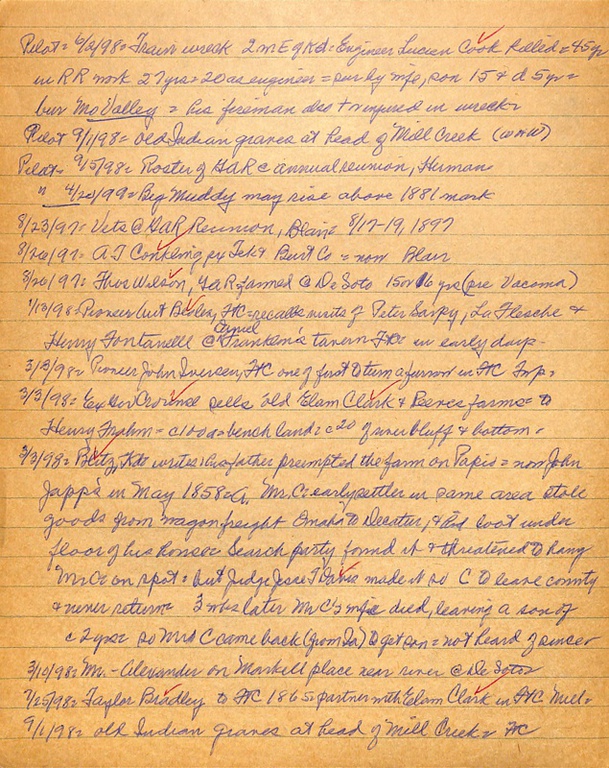 Pilot = 6/2/98 = Train wreck 2 m E of Kd = Engineer Lucien Cook killed = 45 yr
in RR work 27 yrs = 20 as engineer = sur by wife, son 15 & d 5 yr =
bur Mo Valley = his fireman also + injured in wreck =
Pilot 9/1/98 = old Indian graves at head of Mill Creek
Pilot = 9/15/98 = Roster of GAR @ annual reunion, Herman
" 4/20/99 = Big Muddy may rise above 1881 mark
8/23/97 = Vets @ GAR Reunion, Blair 8/17-19, 1897
8/26/97 = A J Conkling Tek & Burt Co = now Blair
8/26/97 = Thos Wilson, GAR farmed @ De Soto 15 or 16 yrs (pre Vacoma)
1/13/98 = Pioneer FC = recalls visits of Peter Sarpy, La Flesche &
Henry Fontanelle @ Franklin's tavern FC in early days -
3/3/98 = Pioneer John Iversen, FC one of first to turn a furrow in FC Twp.
3/3/98 = Ex Gov Crounse sells old Elam Clark & Reeves farms = to
Henry Frahm = c 100 a = bench land = c 20 of river bluff & bottom =
3/3/98 = Betz, Kdo writes his father preempted the farm on Papio = now John
Japp's in May 1858 = A Mr. C = early settler in same area stole
goods from wagon freight Omaha to Decatur, & hid loot under
floor of his house = Search party found it & threatened to hang
Mr C on spot = but Judge Jesse T Davis made it so C to leave county
& never return = 3 mos later Mr C's wife died, leaving a son of
c 2 yrs = so Mr C came back (from Ia) to get son = not heard of since
3/10/98 = Mr. - Alexander on Markell place near river @ De Soto
7/25/98 = Taylor Bradley to FC 1865 = partner with Elam Clark in FC Mill =
9/1/98 = old Indian graves at head of Mill Creek = FC